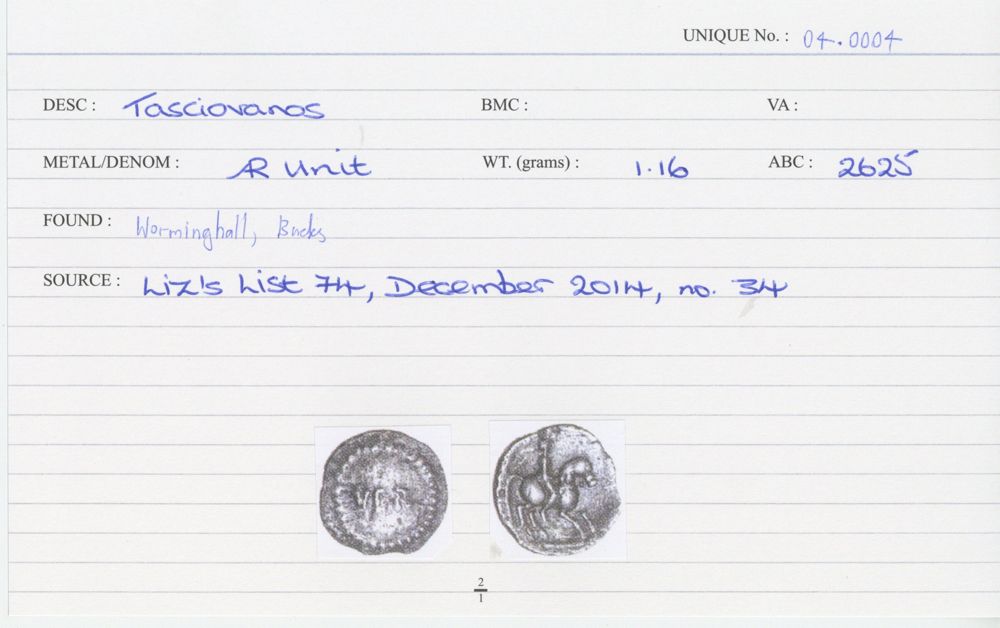 UNIQUE No. : 04.0004
DESC : Tasciovanos BMC : VA :
METAL/DENOM : AR Unit WT. (grams) : 1.16 ABC : 2625
FOUND : Worminghall, Bucks
SOURCE : Liz's List 74, December 2014, no. 34
VER
2
1